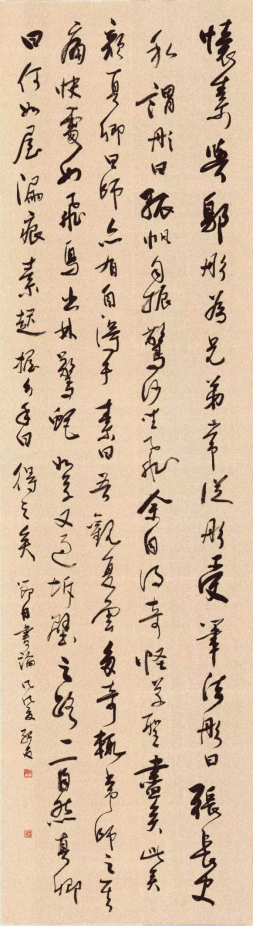 懷素與鄔彤為兄弟常從彤受筆法彤曰張長史
私謂彤曰孤帆自振驚沙坐飛余自得奇怪草聖盡矣此矣
顏真卿曰師亦有自得乎素曰吾觀夏雲多奇輒常師之其
痛快處如飛鳥出林驚蛇入草又遇坼壁之路一一自然真卿
曰何如屋漏痕素起握公手曰得之矣 節日書論